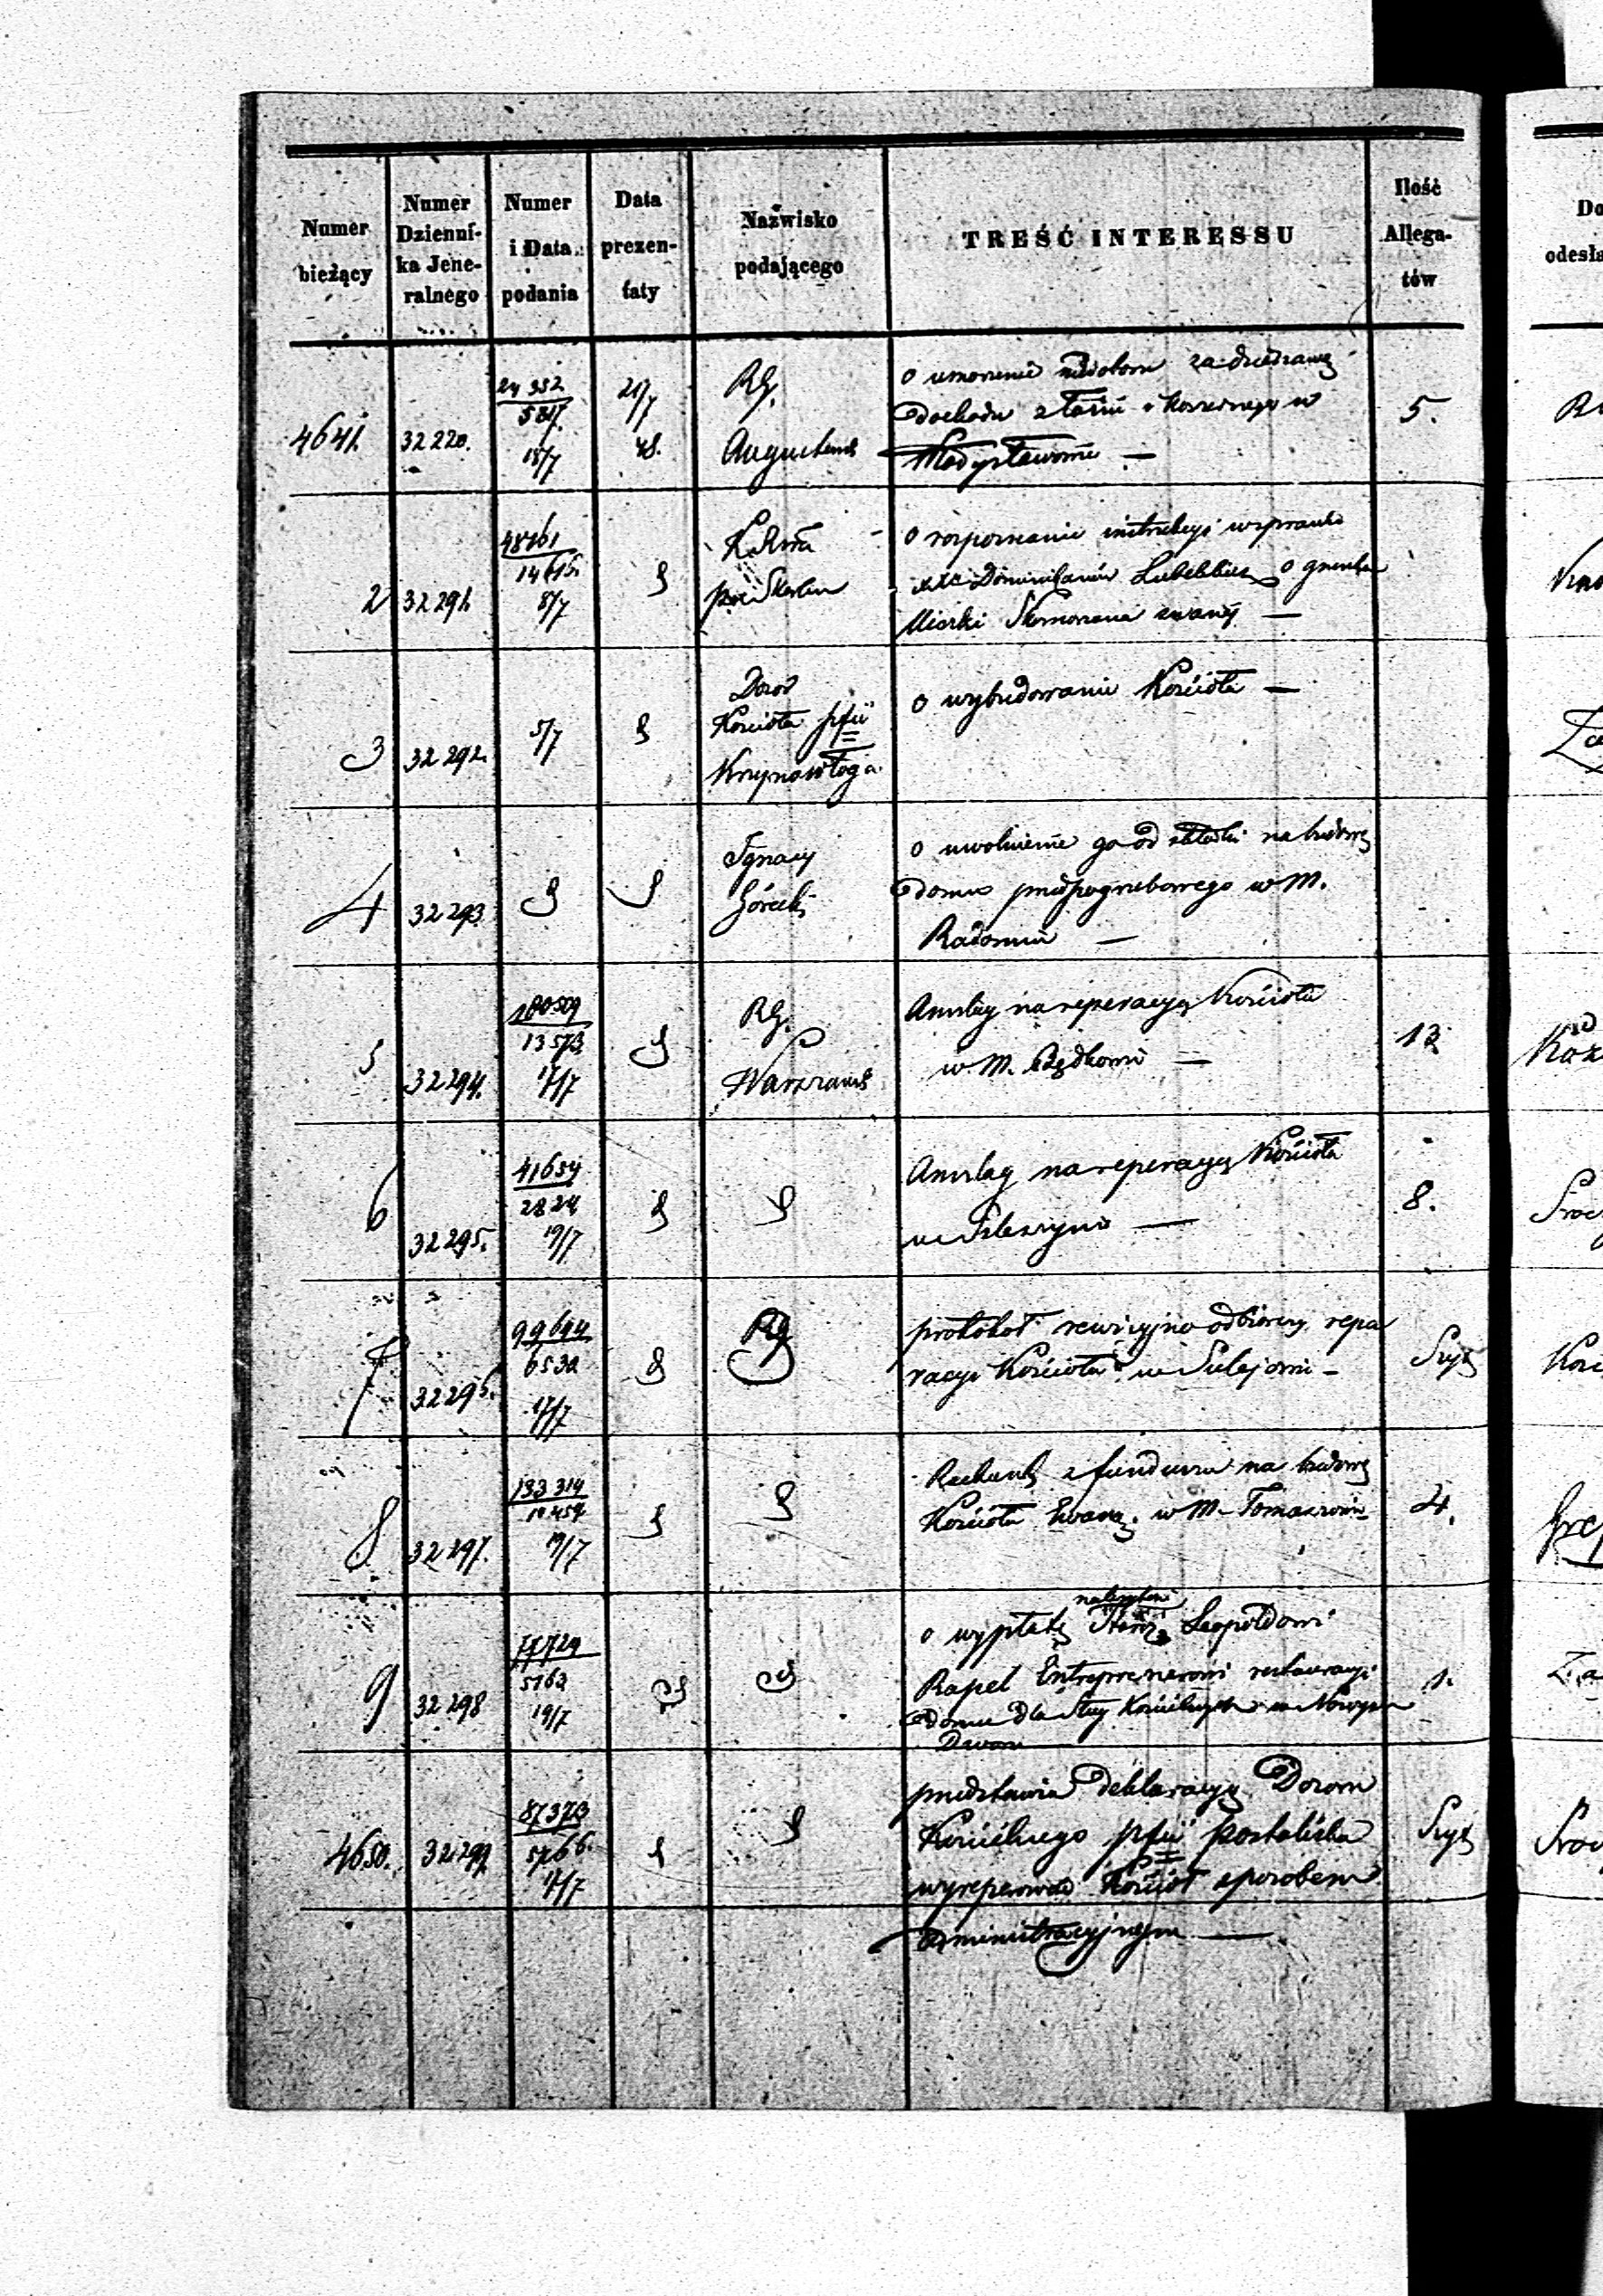 Numer bieżący
Numer Dzienni-ka Jene-ralnego
Numer i Data podania
Data prezen-taty
Nazwisko podającego
TREŚĆ INTERESSU
Ilość Allega-tów
4641. 32220. 24352 5817. 18/7 21/7 48. RG. August o umorzenie za dzierżawę 5.
dochodu z łaźni i koszernego w
Władysławowie —
2 32291. 48161 14615. 8/7 o rozpoznanie instrukcyi w sprawie
XX Dominikanów Lubelskich o
zwanej —
3 32292. 5/7 Dozór
Kościoła pfii
Krzynowłoga
o wybudowanie Kościoła —
4 32293. Ignacy
Górecki
o uwolnienie go od składki na budowę
domu przedpogrzebowego w M.
Radomiu —
5 32294. 180509 13573 17/7 RG.
Warszaws
Anszlag na reperacyą Kościoła
w M. Będkowie — 12
6 32295. 41654 2824 19/7 Anszlag na reperacyą Kościoła 8.
w —
7 32296. 99694 6532 17/7 RG protokół rewizyjno odbiorczy repa
racyi Kościoła w Sulejowie — Szyt
8 32297. 133314 10454 19/7 Rachunki z funduszu na budowę
Kościoła Ewang. w M. Tomaszowie 4.
9 32298 77729 5163 19/7 należytości
o wypłatę Leopoldowi
Rapel Entreprenerowi restauracyi 1.
domu dla Sług Kościelnych w Nowym
Dworze
4650. 32299. 87373 5766. 17/7 przedstawia Deklaracyą Dozoru
Kościelnego pfii Postoliska Szyt
wyreperować Kościół sposobem
administracyjnym —